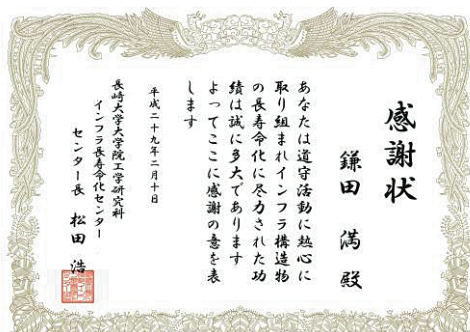 感謝状
鎌田 満 殿
あなたは道守活動に熱心に
取り組まれインフラ構造物
の長寿命化に尽力された功
績は誠に多大であります
よってここに感謝の意を表
します
平成二十九年二月十日
長崎大学大学院工学研究科
インフラ長寿命化センター
センター長 松田 浩